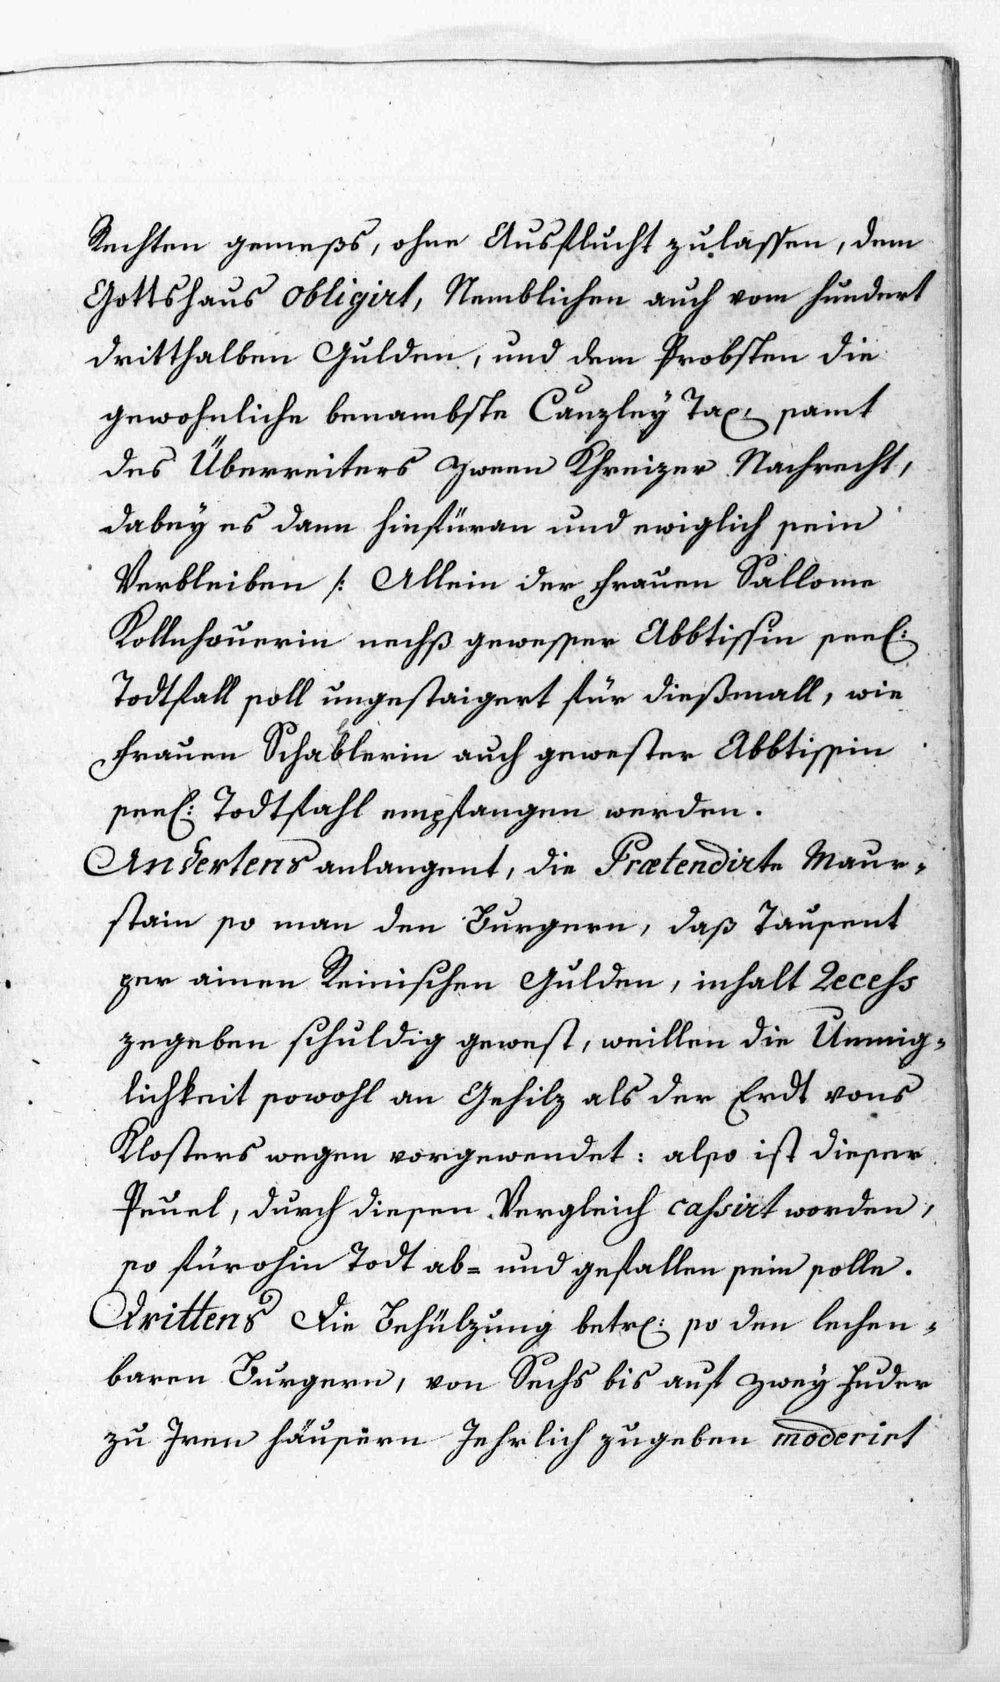 Rechten gemeßs, ohne Ausflucht zulassen, dem
Gottshaus obligirt, Nemblichen auch vom hundert
dritthalben Gulden, und dem Probsten die
gewohnliche benambste Canzley Tax, samt
des Überreiters zween Khreizer Nachrecht,
dabey es dann hinfüran und ewiglich sein
Verbleiben /: Allein der frauen Sallome
Kollnhouerin nechst gewesser Abbtissin seel:
Todtfall soll ungestaigert für dießmall, wie
frauen Schablerin auch gewester Abbtissin
seel: Todtfahl empfangen werden.
Andertens anlangent, die Prætendirte Maur-
stain so man den Burgern, daß Tausent
per ainen Reinischen Gulden, inhalt Recess
zegeben schuldig gewest, weillen die Unmig-
lichkeit sowohl an Gehilz als der Erdt vons
Klosters wegen vorgewendet: also ist dieser
Peuel, durch diesen Vergleich cassirt worden,
so fürohin Todt ab= und gefallen sein solle.
Drittens Die Behülzung betrf: so den lechen-
baren Burgern, von Sechs bis auf zwey fuder
zu Iren häusern Jehrlich zugeben moderirt